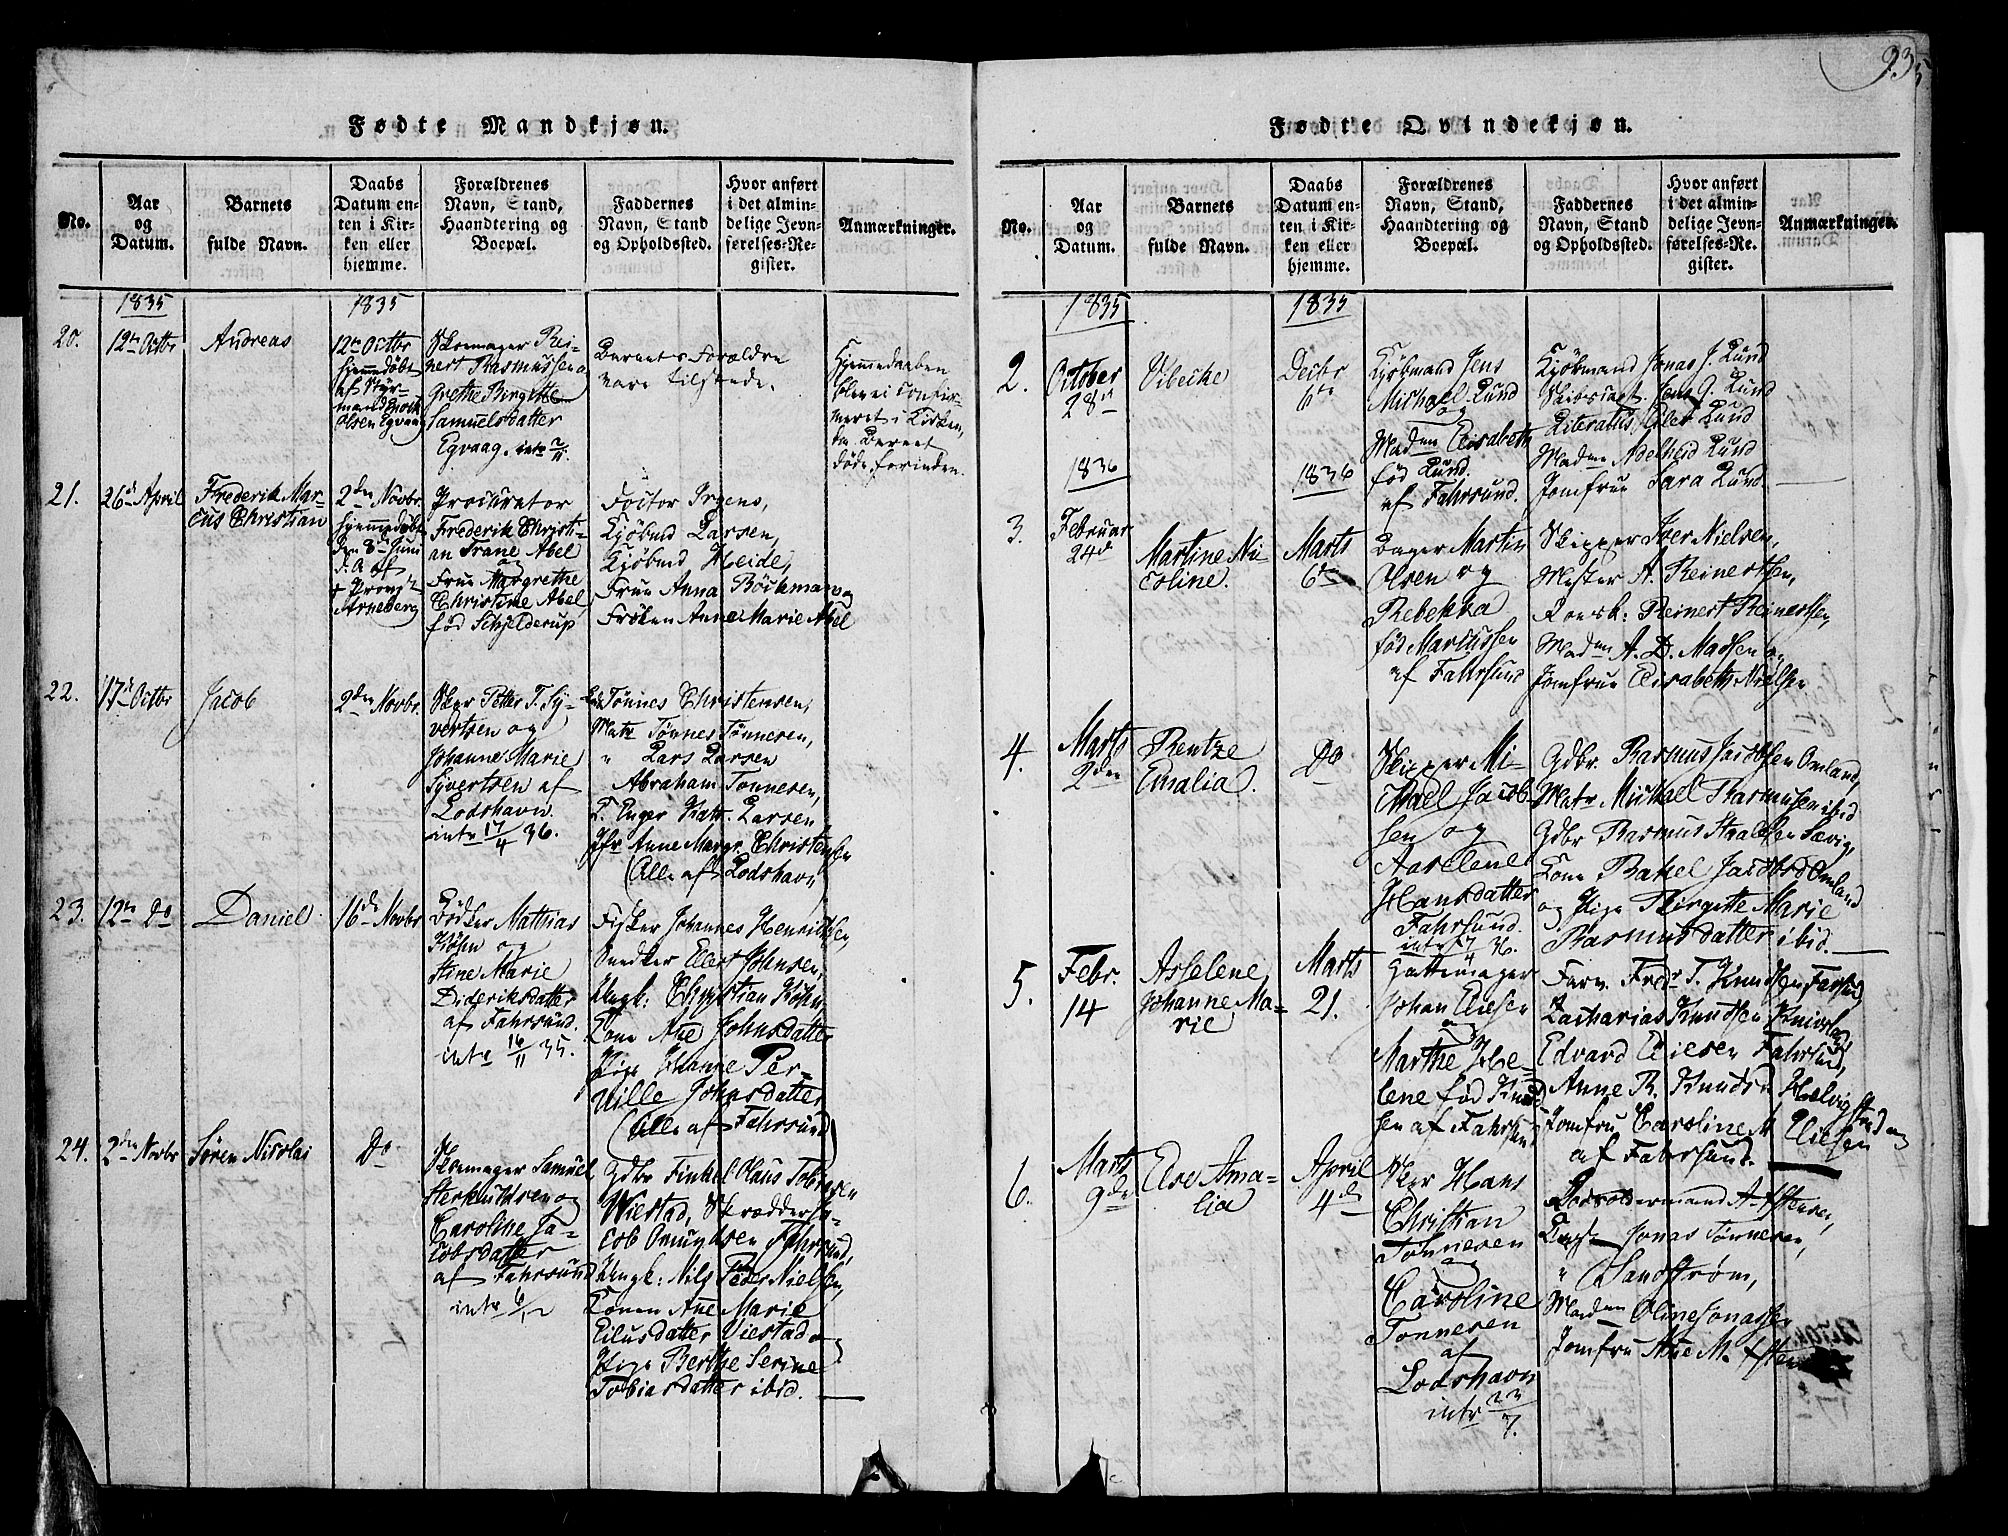 935
Fødte Mandkjøn.
No.
Aar
og
Datum.
Barnets
fulde Navn.
Daabs
Datum en-
ten i Kir-
ken eller
hjemme.
Forældrenes
Navn, Stand,
Haandtering og
Boepæl.
Faddernes
Navn, Stand
og Opholdssted.
Hvor anført
i det almin-
delige Jevn-
førelses-Re-
gister.
Anmærkninger.
1835
1835
20.
12te Octbr
Andreas
12te Octbr
hjemmedøbt
af Styr-
mand
Olsen Egvaag
Skomager Rei-
nert Rasmussen
Grethe Birgitte
Samuelsdatter
Egvaag. intr 2/11.
Barnets Forældre
vare tilstede.
Hjemmedaaben
blev ei confir-
meret i Kirken,
da Barnet
døde forinden.
21.
26d April
Frederik Mar-
cus Christian
2den Novbr.
hjemmedøbt
den 8de Juni
d. A. af
Arneberg
Procurator
Frederik Christi-
an Trane Abel
og
Frue Margrethe
Christine Abel,
fød Schjelderup
Doctor Irgens,
Kjøbmd Larsen,
Kjøbmd Heide,
Frue Anna Böckman og
Frøken Anne Marie Abel
22.
17d Octbr
Jacob
2den Novbr.
Skpr Petter T. Sy-
vertsen og
Johanne Marie
Syvertsen af
Lodshavn.
intr 17/4 36.
Tønnes Christensen,
Matr Tønnes Tønnesen,
" Lars Larsen
Abraham Tønnesen,
K. Inger Katr. Larsen,
Jfr Anne Margr. Christensen
(Alle af Lodshavn
23.
12te Do
Daniel
16de Novbr
Bødker Mathias
Köhn og
Stine Marie
Dideriksdatter
af Fahrsund.
intr 16/11 35.
Fisker Johannes Henriksen,
Snedker Elert Johnsen,
Ungk: Christian Köhn,
Kone Ane Johnsdatter
Pige Johanne Per-
nille Johnsdatter
(Alle af Fahrsund)
24.
2den Novbr
Søren Nicolai
Do
Skomager Samuel
Sterkuldsen og
Caroline Ja-
cobsdatter
af Fahrsund
intr 6/12
Gdbr Finkel Olaus Tobiasen
Wiestad, Skrædder Ja-
cob Omundsen Fahrsund,
Ungk: Nils Peder Nielsen,
Konen Ane Marie
Eilusdatter Viestad og
Pige Berthe Serine
Tobiasdatter ibid.
Fødte Qvindekjøn.
No.
Aar
og
Datum.
Barnets
fulde Navn.
Daabs
Datum en-
ten i Kir-
ken eller
hjemme.
Forældrenes
Navn, Stand,
Haandtering og
Boepæl.
Faddernes
Navn, Stand
og Opholdssted.
Hvor anført
i det almin-
delige Jevn-
førelses-Re-
gister.
Anmærkninger.
1835
1835
2.
October
28d
Vibecke
Decbr
6te
Kjöbmand Jens
Michael Lund
og
Madm Elisabeth
fød Lund.
af Fahrsund.
Kjöbmand Jonas J. Lund
Jens G. Lund
Literatus Eiler Lund
Madme Adelheid Lund
Jomfrue Sara Lund.
1836
1836
3.
Februar
24d
Martine Ni-
coline.
Marts
6te
Bager Martin
Olsen og
Rebekka
fød Marcussen
af Fahrsund
Skipper Iver Nielsen,
Mester A. Reinertsen,
Reinert Reinertsen,
Madm A. D. Madsen og
Jomfrue Elisabeth Nielsen
4.
Marts
2den
Rentze
Emalia.
Do
Skipper Mi-
chael Jacob-
sen og
Aaselene
Hansdatter
Fahrsund.
intr 17/4 36.
Gdbr. Rasmus Jacobsen Omland,
Matr Michael Rasmusen ibid
Gdbr Rasmus Staalesen Lervig,
Kone Rakel Jacobsd Omland
og Pige Birgitte Marie
Rasmusdatter ibid.
5.
Febr.
14
Asselene
Johanne Ma-
rie
Marts
21.
Hattemager
Johan Eliesen
og
Marthe He-
lene fød Knud-
sen af Fahrsund
Farv. Fredr T. Knudsen Farsund
Zacharias Knudsen
Edvard Eliesen Fahrsund,
Anne B. Knudsen Helvig
Jomfru Caroline M. Eliesen
af Fahrsund.
6.
Marts
9de
Else Ama-
lia
April
4de
Skpr Hans
Christian
Tönnesen
og
Caroline
Tönnesen
af
Lodshavn
intr 23/7.
Lodsoldermand A. Estensen,
Jonas Tönnesen,
" Sandström,
Madm Oline Jonassen
Jomfru Ane M.